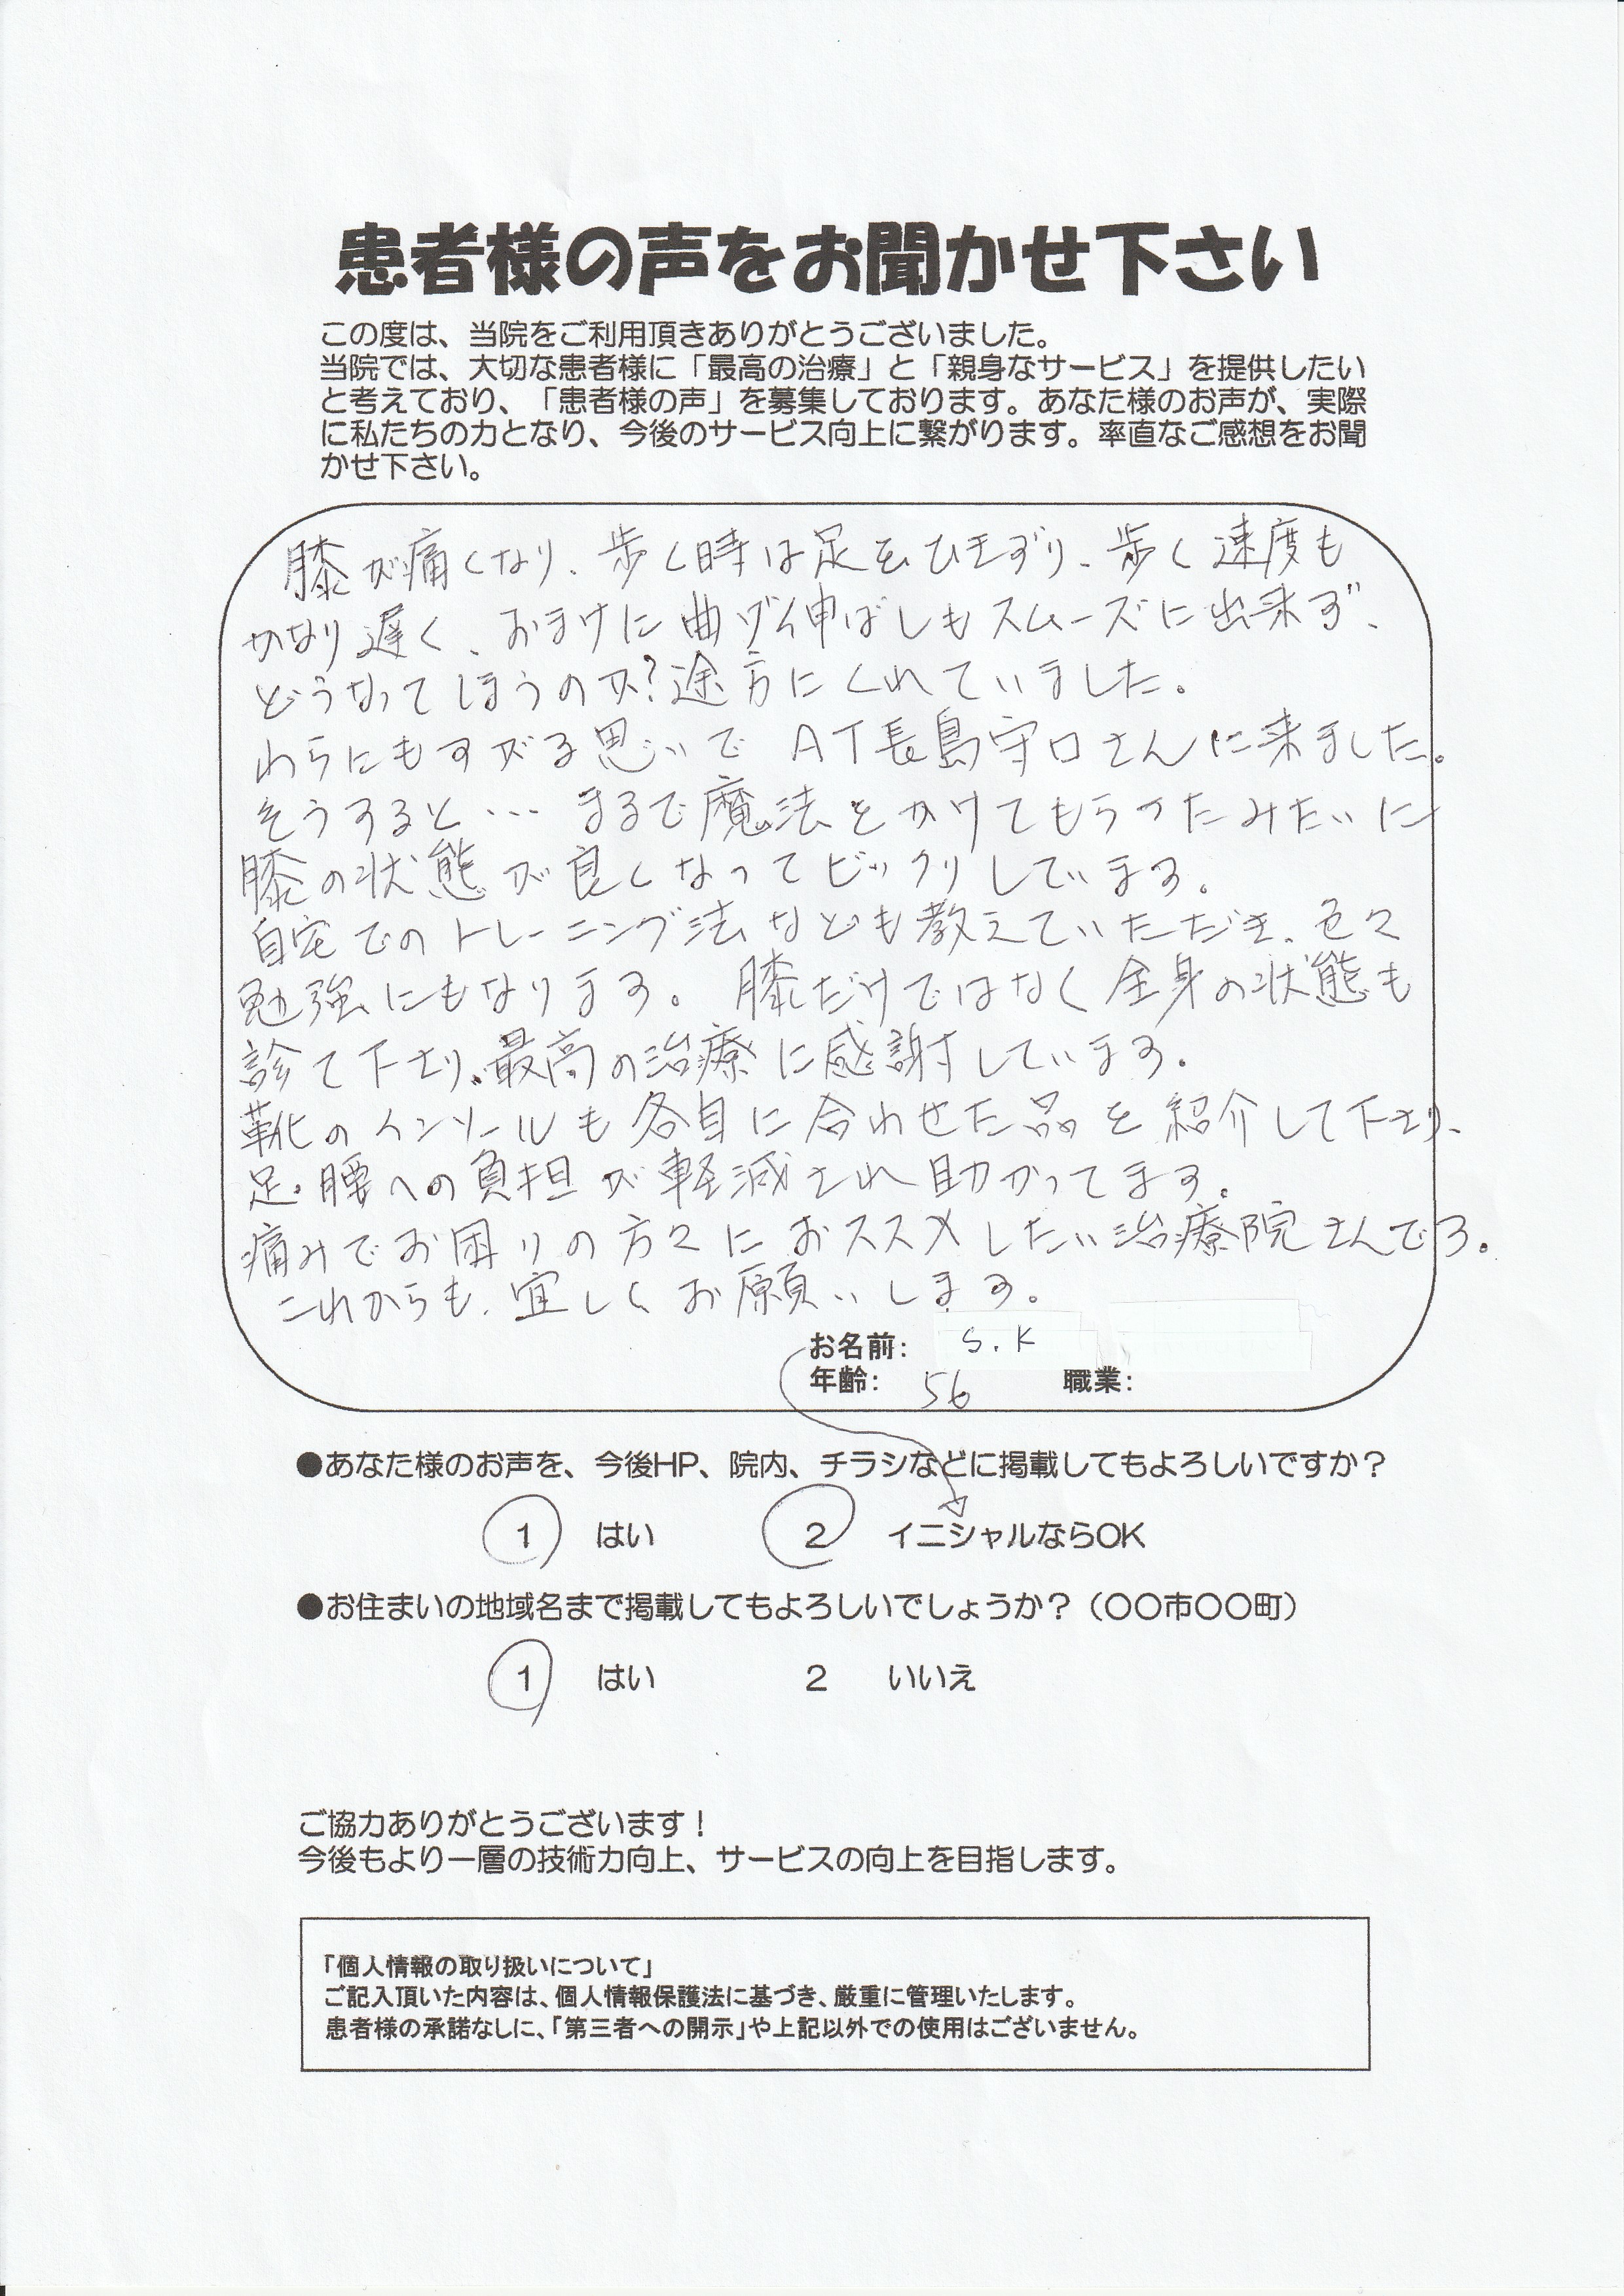 患者様の声をお聞かせ下さい
この度は、当院をご利用頂きありがとうございました。
当院では、大切な患者様に「最高の治療」と「親身なサービス」を提供したい
と考えており、「患者様の声」を募集しております。あなた様のお声が、実際
に私たちの力となり、今後のサービス向上に繋がります。率直なご感想をお聞
かせ下さい。
膝が痛くなり、歩く時は足をひきずり、歩く速度も
かなり遅く、おまけに曲げ伸ばしもスムーズに出来ず、
どうなってしまうのか?途方にくれていました。
わらにもすがる思いで AT長島守口さんに来ました。
そうすると… まるで魔法をかけてもらったみたいに
膝の状態が良くなってビックリしています。
自宅でのトレーニング法なども教えていただき、色々
勉強にもなります。膝だけではなく全身の状態も
診て下さり、最高の治療に感謝しています。
靴のインソールも各自に合わせた品を紹介して下さり、
足・腰への負担が軽減され助かってます。
痛みでお困りの方々におススメしたい治療院さんです。
これからも、宜しくお願いします。
お名前: S.K
年齢: 56 職業:
●あなた様のお声を、今後HP、院内、チラシなどに掲載してもよろしいですか?
1 はい 2 イニシャルならOK
●お住まいの地域名まで掲載してもよろしいでしょうか?(〇〇市〇〇町)
1 はい 2 いいえ
ご協力ありがとうございます!
今後もより一層の技術力向上、サービスの向上を目指します。
「個人情報の取り扱いについて」
ご記入頂いた内容は、個人情報保護法に基づき、厳重に管理いたします。
患者様の承諾なしに、「第三者への開示」や上記以外での使用はございません。